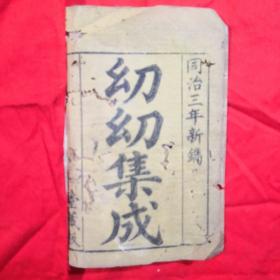 同治三年新鐫
幼幼集成
堂藏